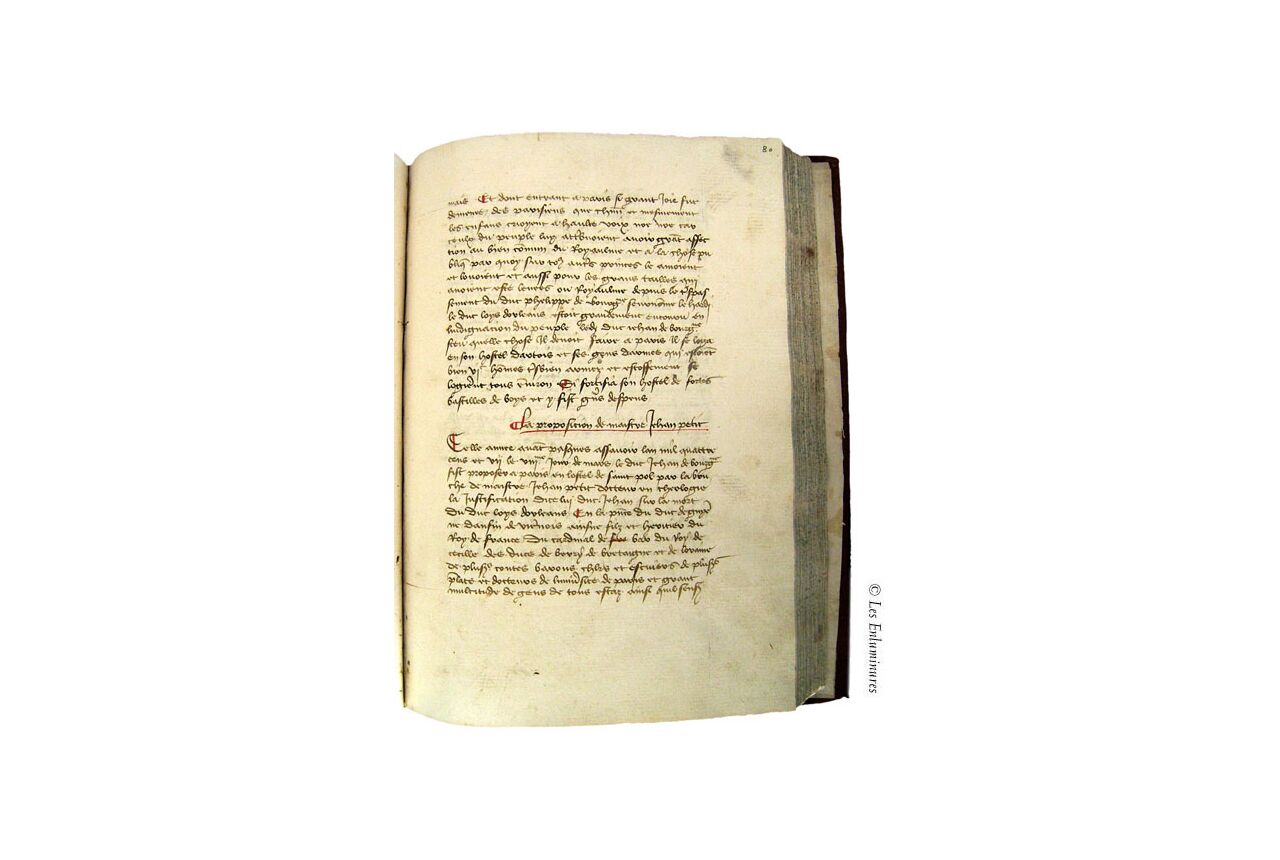 80
mais Et dont entrant a paris si grant Joie fut
demenee des parisiens que et mesmement
les enfans crioyent a haulte voix noe noe car
ceulx du peuple luy avoir affec
tion au bien commun du Royaulme et a la chose pu
blique par quoy sur princes le amoient
et louoient et aussi pour les grans tailles qui
avoient este levees ou Royaulme depuis le trespas
sement du duc phelippe de bourgne seurnomme le hardi
le duc loys dorleans estoit grandement encouru en
Indignation du peuple ledi duc Jehan de bourgne
quelle chose Il devoit faire a paris Il se loga
en son hostel dartois et ses gens darmes qui estoient
bien hommes tresbien armez et estoffement se
logierent tous environ Si fortifia son hostel de fortes
bastilles de boys et y fist grans despens
La proposition de maistre Jehan petit
Celle annee avant pasques assavoir lan mil quattre
cens et vii le viiie Jour de mars le duc Jehan de bourgne
fist proposer a paris en lostel de saint pol par la bou
che de maistre Jehan petit docteur en theologie
la Justification dicelui duc Jehan sur la mort
du duc loys dorleans En la presence du duc de guyen
ne daufin de viennois aisne filz et heritier du
Roy de france Du cardinal de bar du Roy de
cecille des ducs de berry de bretaigne et de loraine
de pluseurs contes barons chevaliers et escuiers de pluseurs
prelats et docteurs de luniversite de paris et grant
multitude de gens de tous estaz ainsi quil sensuit
© Les Enluminures